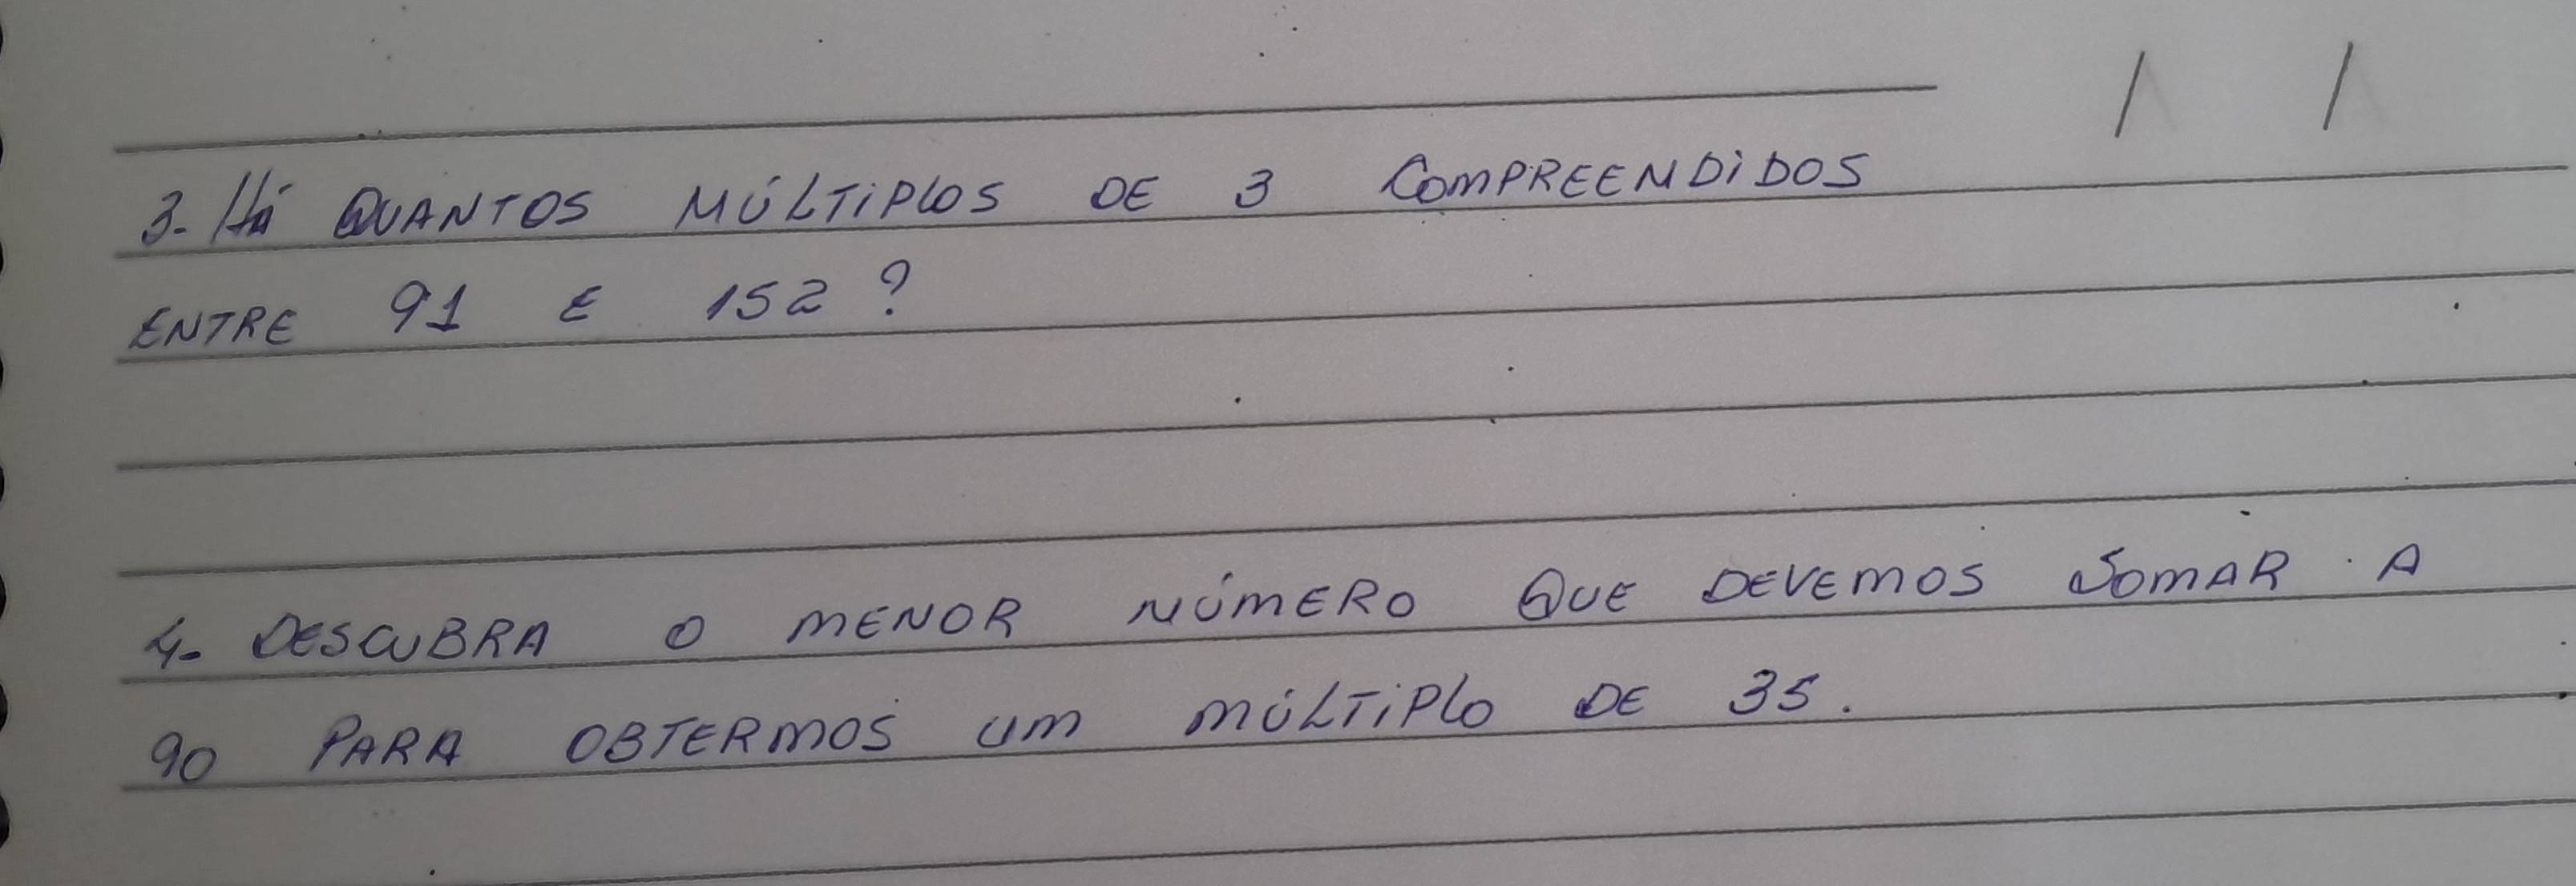 3- Há QUANTOS MÚLTIPLOS DE 3 COMPREENDIDOS
ENTRE 91 E 152?
4- DESCUBRA O MENOR NÚMERO QUE DEVEMOS SOMAR A
90 PARA OBTERMOS UM MÚLTIPLO DE 35.